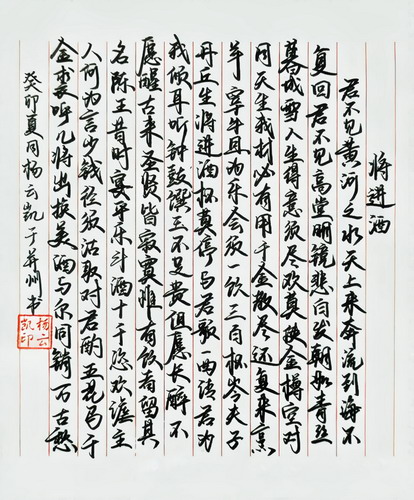 将进酒
君不见黄河之水天上来奔流到海不
复回君不见高堂明镜悲白发朝如青丝
暮成雪人生得意须尽欢莫使金樽空对
月天生我材必有用千金散尽还复来烹
羊宰牛且为乐会须一饮三百杯岑夫子
丹丘生将进酒杯莫停与君歌一曲请君为
我倾耳听钟鼓馔玉不足贵但愿长醉不
愿醒古来圣贤皆寂寞惟有饮者留其
名陈王昔时宴平乐斗酒十千恣欢谑主
人何为言少钱径须沽取对君酌五花马千
金裘呼儿将出换美酒与尔同销万古愁
癸卯夏月杨云凯于州书
杨云
凯印